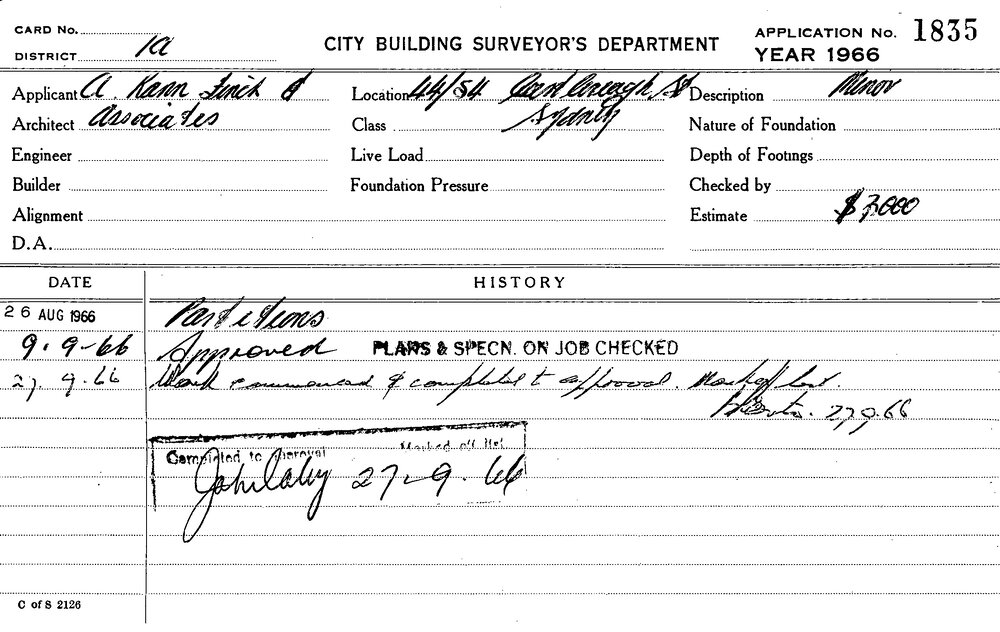 CARD No.
DISTRICT 1a
CITY BUILDING SURVEYOR'S DEPARTMENT
APPLICATION No. 1835
YEAR 1966
Applicant A. Kann Finch &
Architect Associates
Engineer
Builder
Alignment
D.A.
Location 44/54 Castlereagh St
Class Sydney
Live Load
Foundation Pressure
Description Minor
Nature of Foundation
Depth of Footings
Checked by
Estimate $3,000
DATE HISTORY
26 AUG 1966 Partitions
9.9-66 Approved PLANS & SPECN. ON JOB CHECKED
27.9.66 Work commenced & completed to approval. Mark off card.
27.9.66
Completed to approval Marked off list
27-9.66
C of S 2126